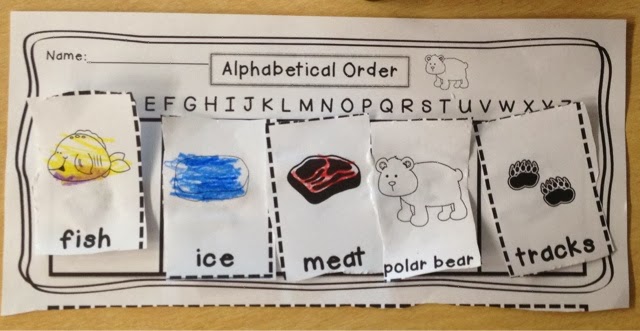 Name:
Alphabetical Order
E F G H I J K L M N O P Q R S T U V W X Y Z
fish
ice
meat
polar bear
tracks